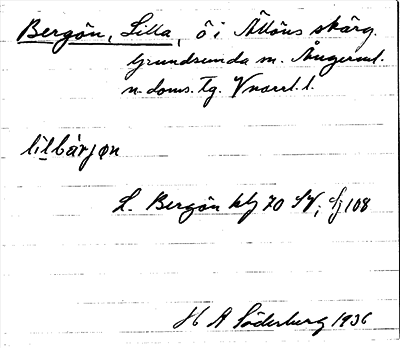 Bergön, Lilla, ö i Ällöns skärg.
Grundsunda sn. Ångerml.
n. doms. tg. Vnorrl. l.
lìlbàrjøn
L. Bergön blj 70 SV; Sj 108
H A Söderberg 1936